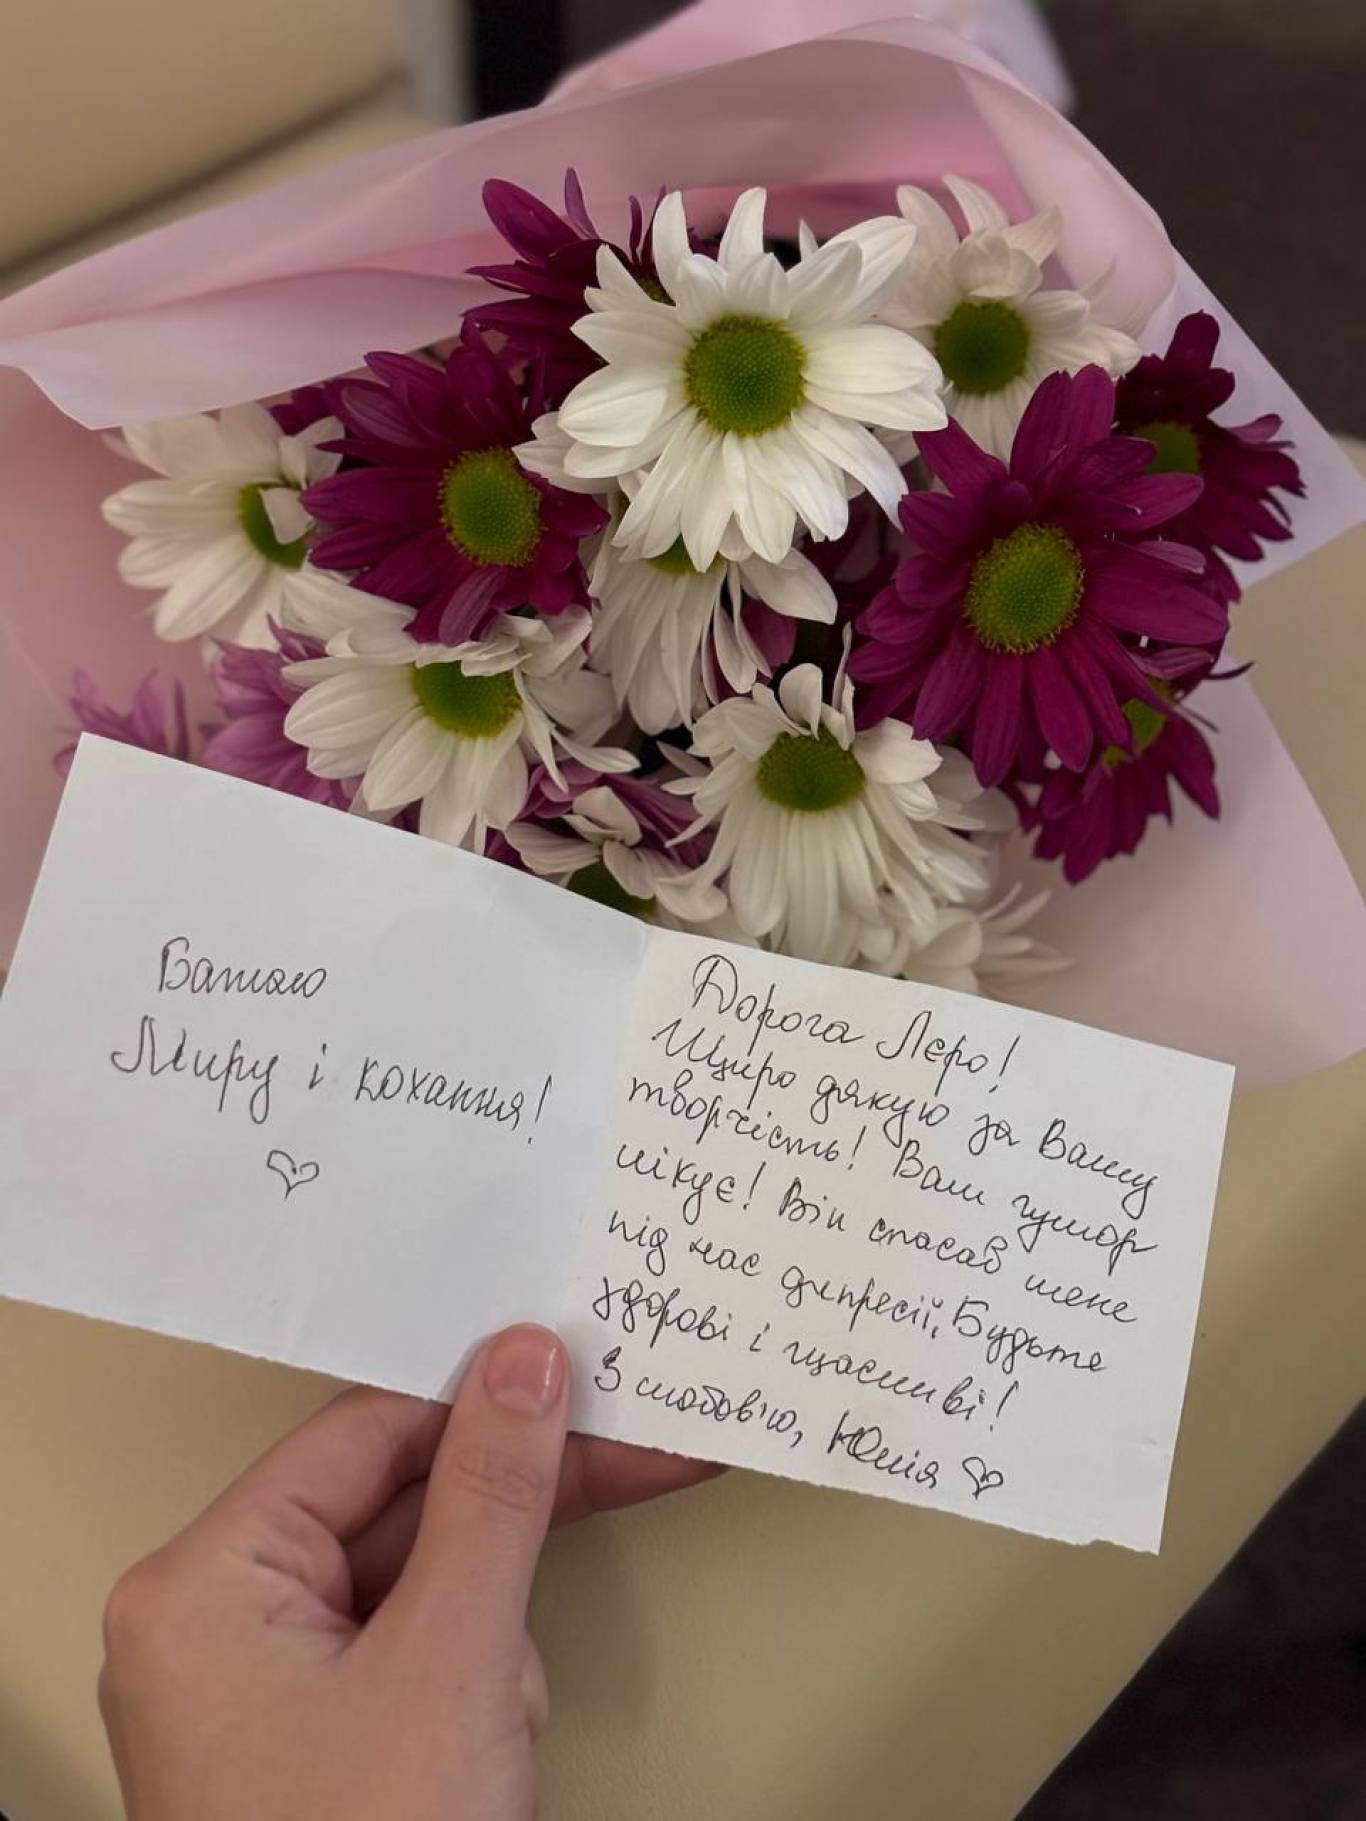 Бажаю
Миру і кохання!
Дорога Лєро!
Щиро дякую за Вашу
творчість! Ваш гумор
лікує! Він спасав мене
під час депресії. Будьте
здорові і щасливі!
З любов'ю, Юлія